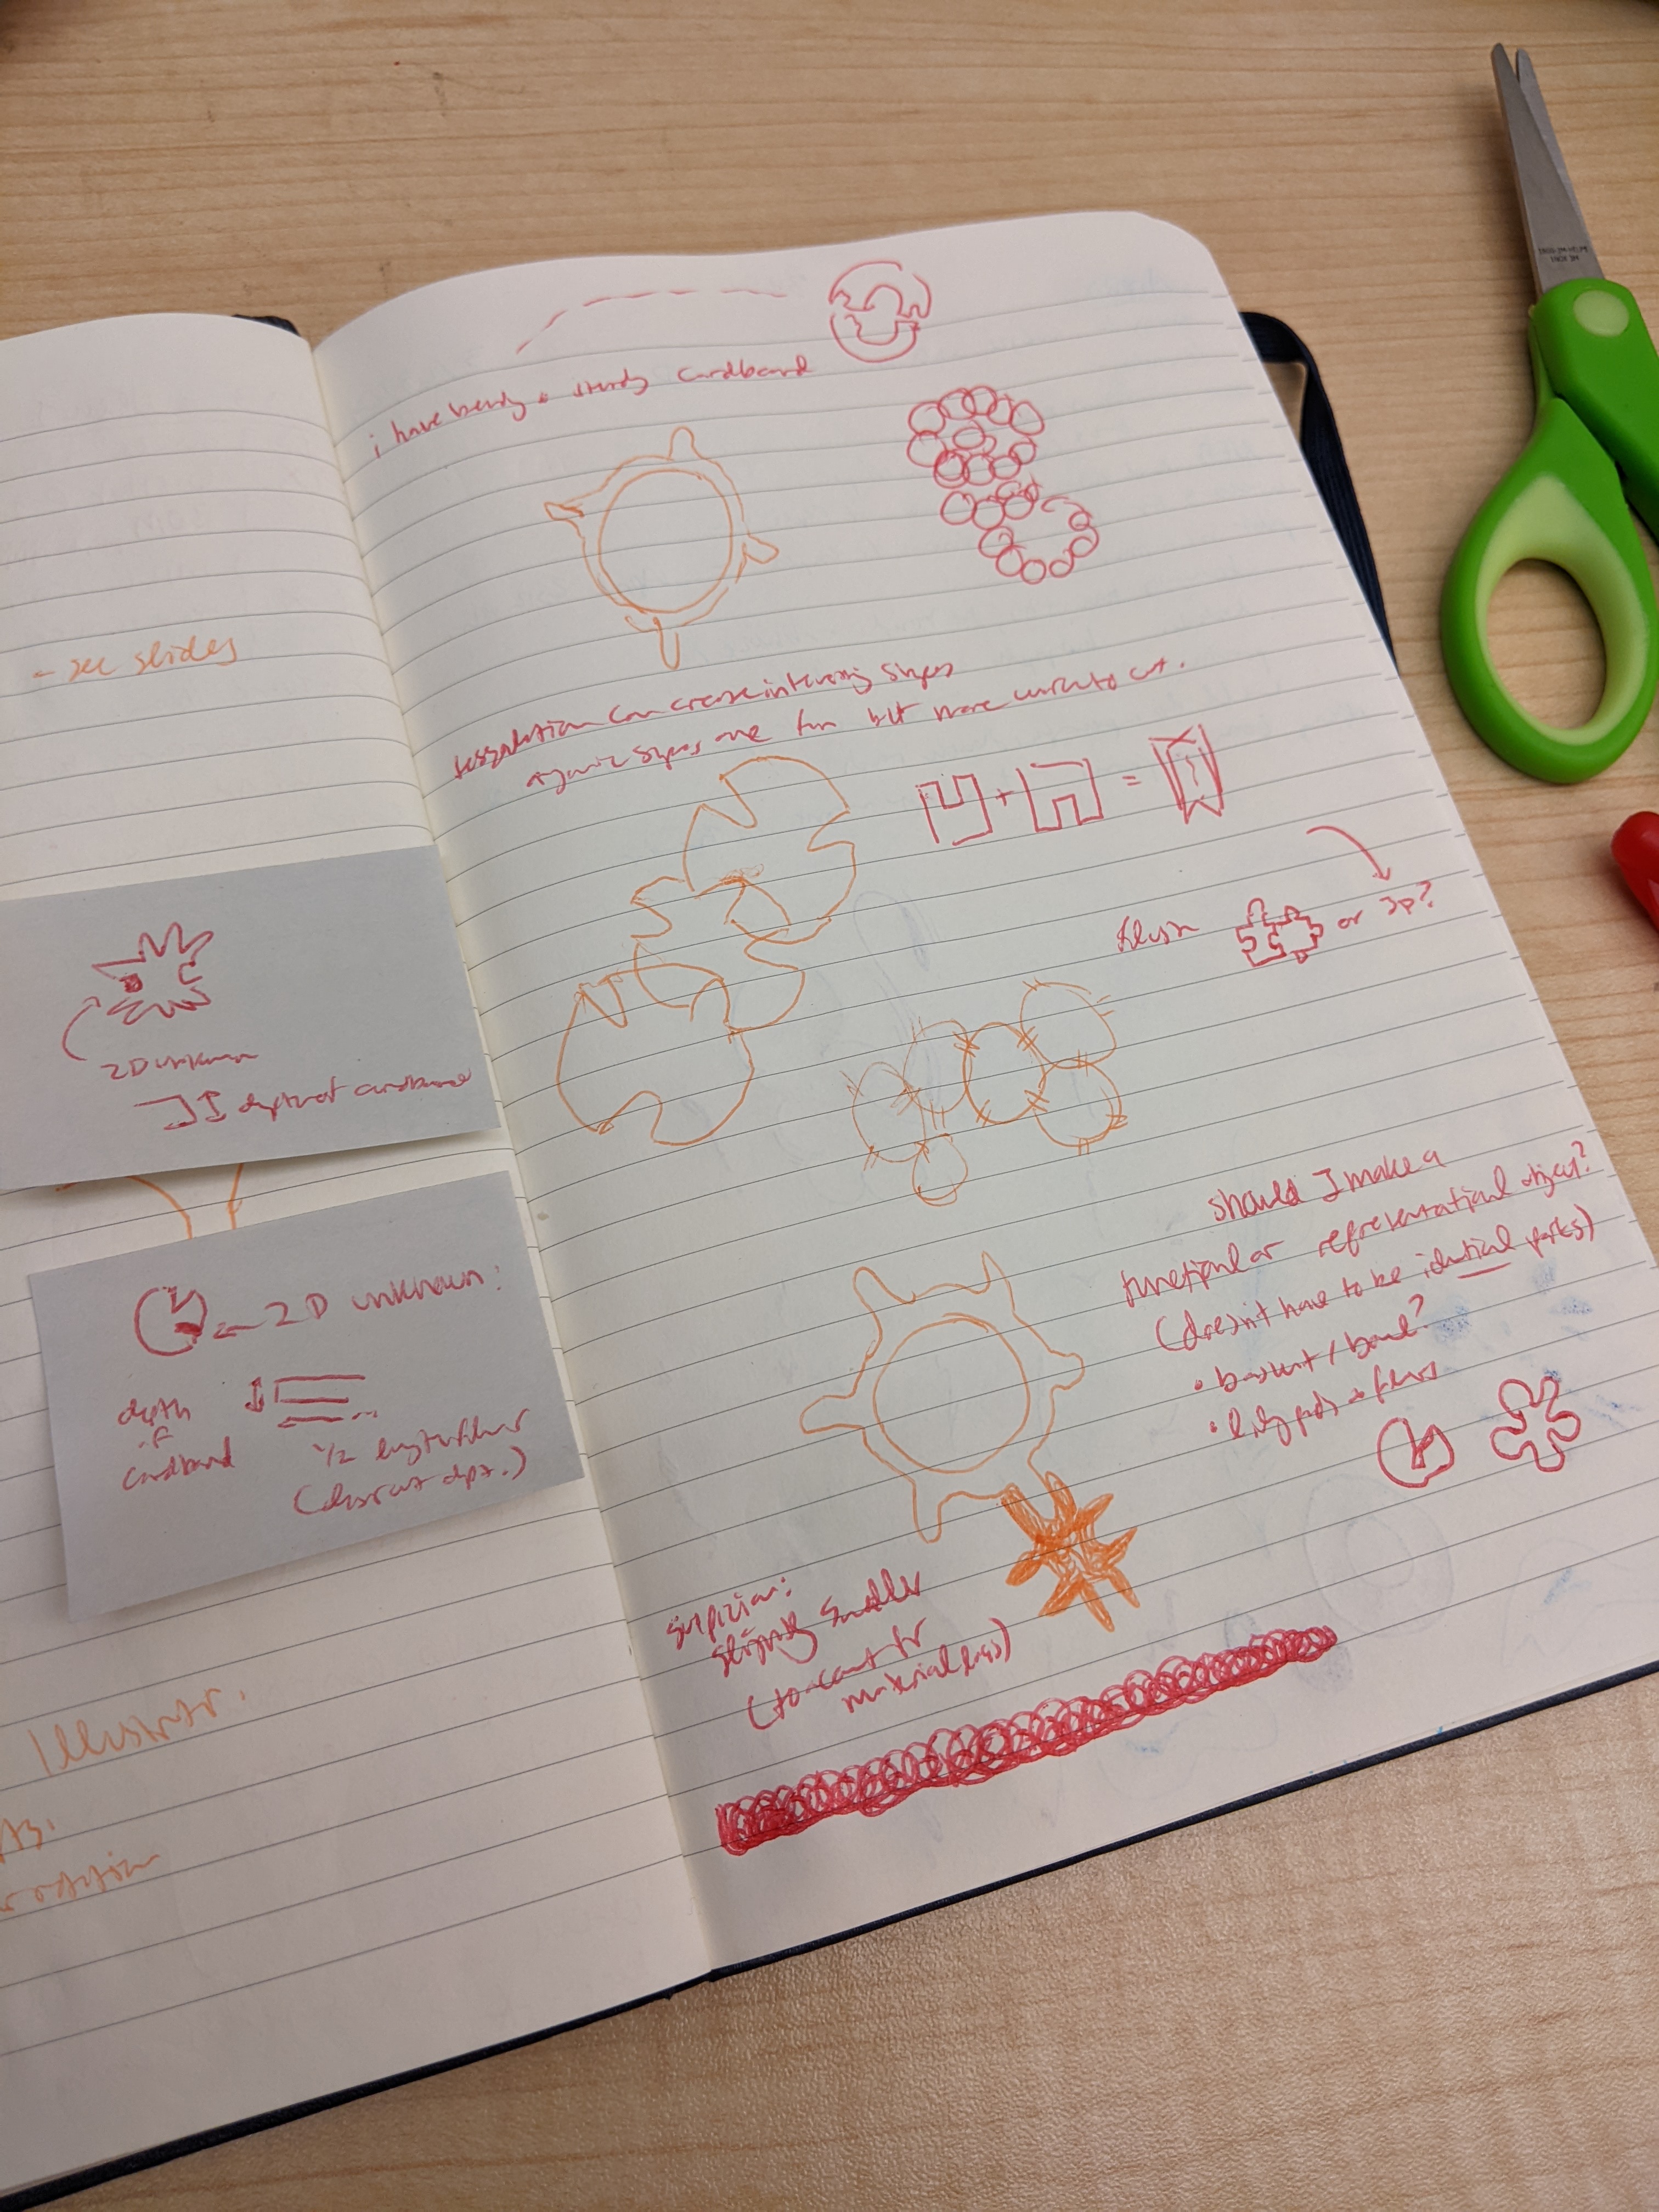 - see slides
2D unknown
depth of cardboard
2D unknown:
depth
of
cardboard
1/2 length
(
Illustrator.
rotation
i have bendy + sturdy cardboard
tessellation can create interesting shapes
organic shapes are fun but more work to cut.
+ =
flush or 3D?
should I make a
functional or representational object?
(doesn't have to be identical parts)
• basket / bowl?
• lily pads +
suspicion:
slightly smaller
(to account for
material loss)